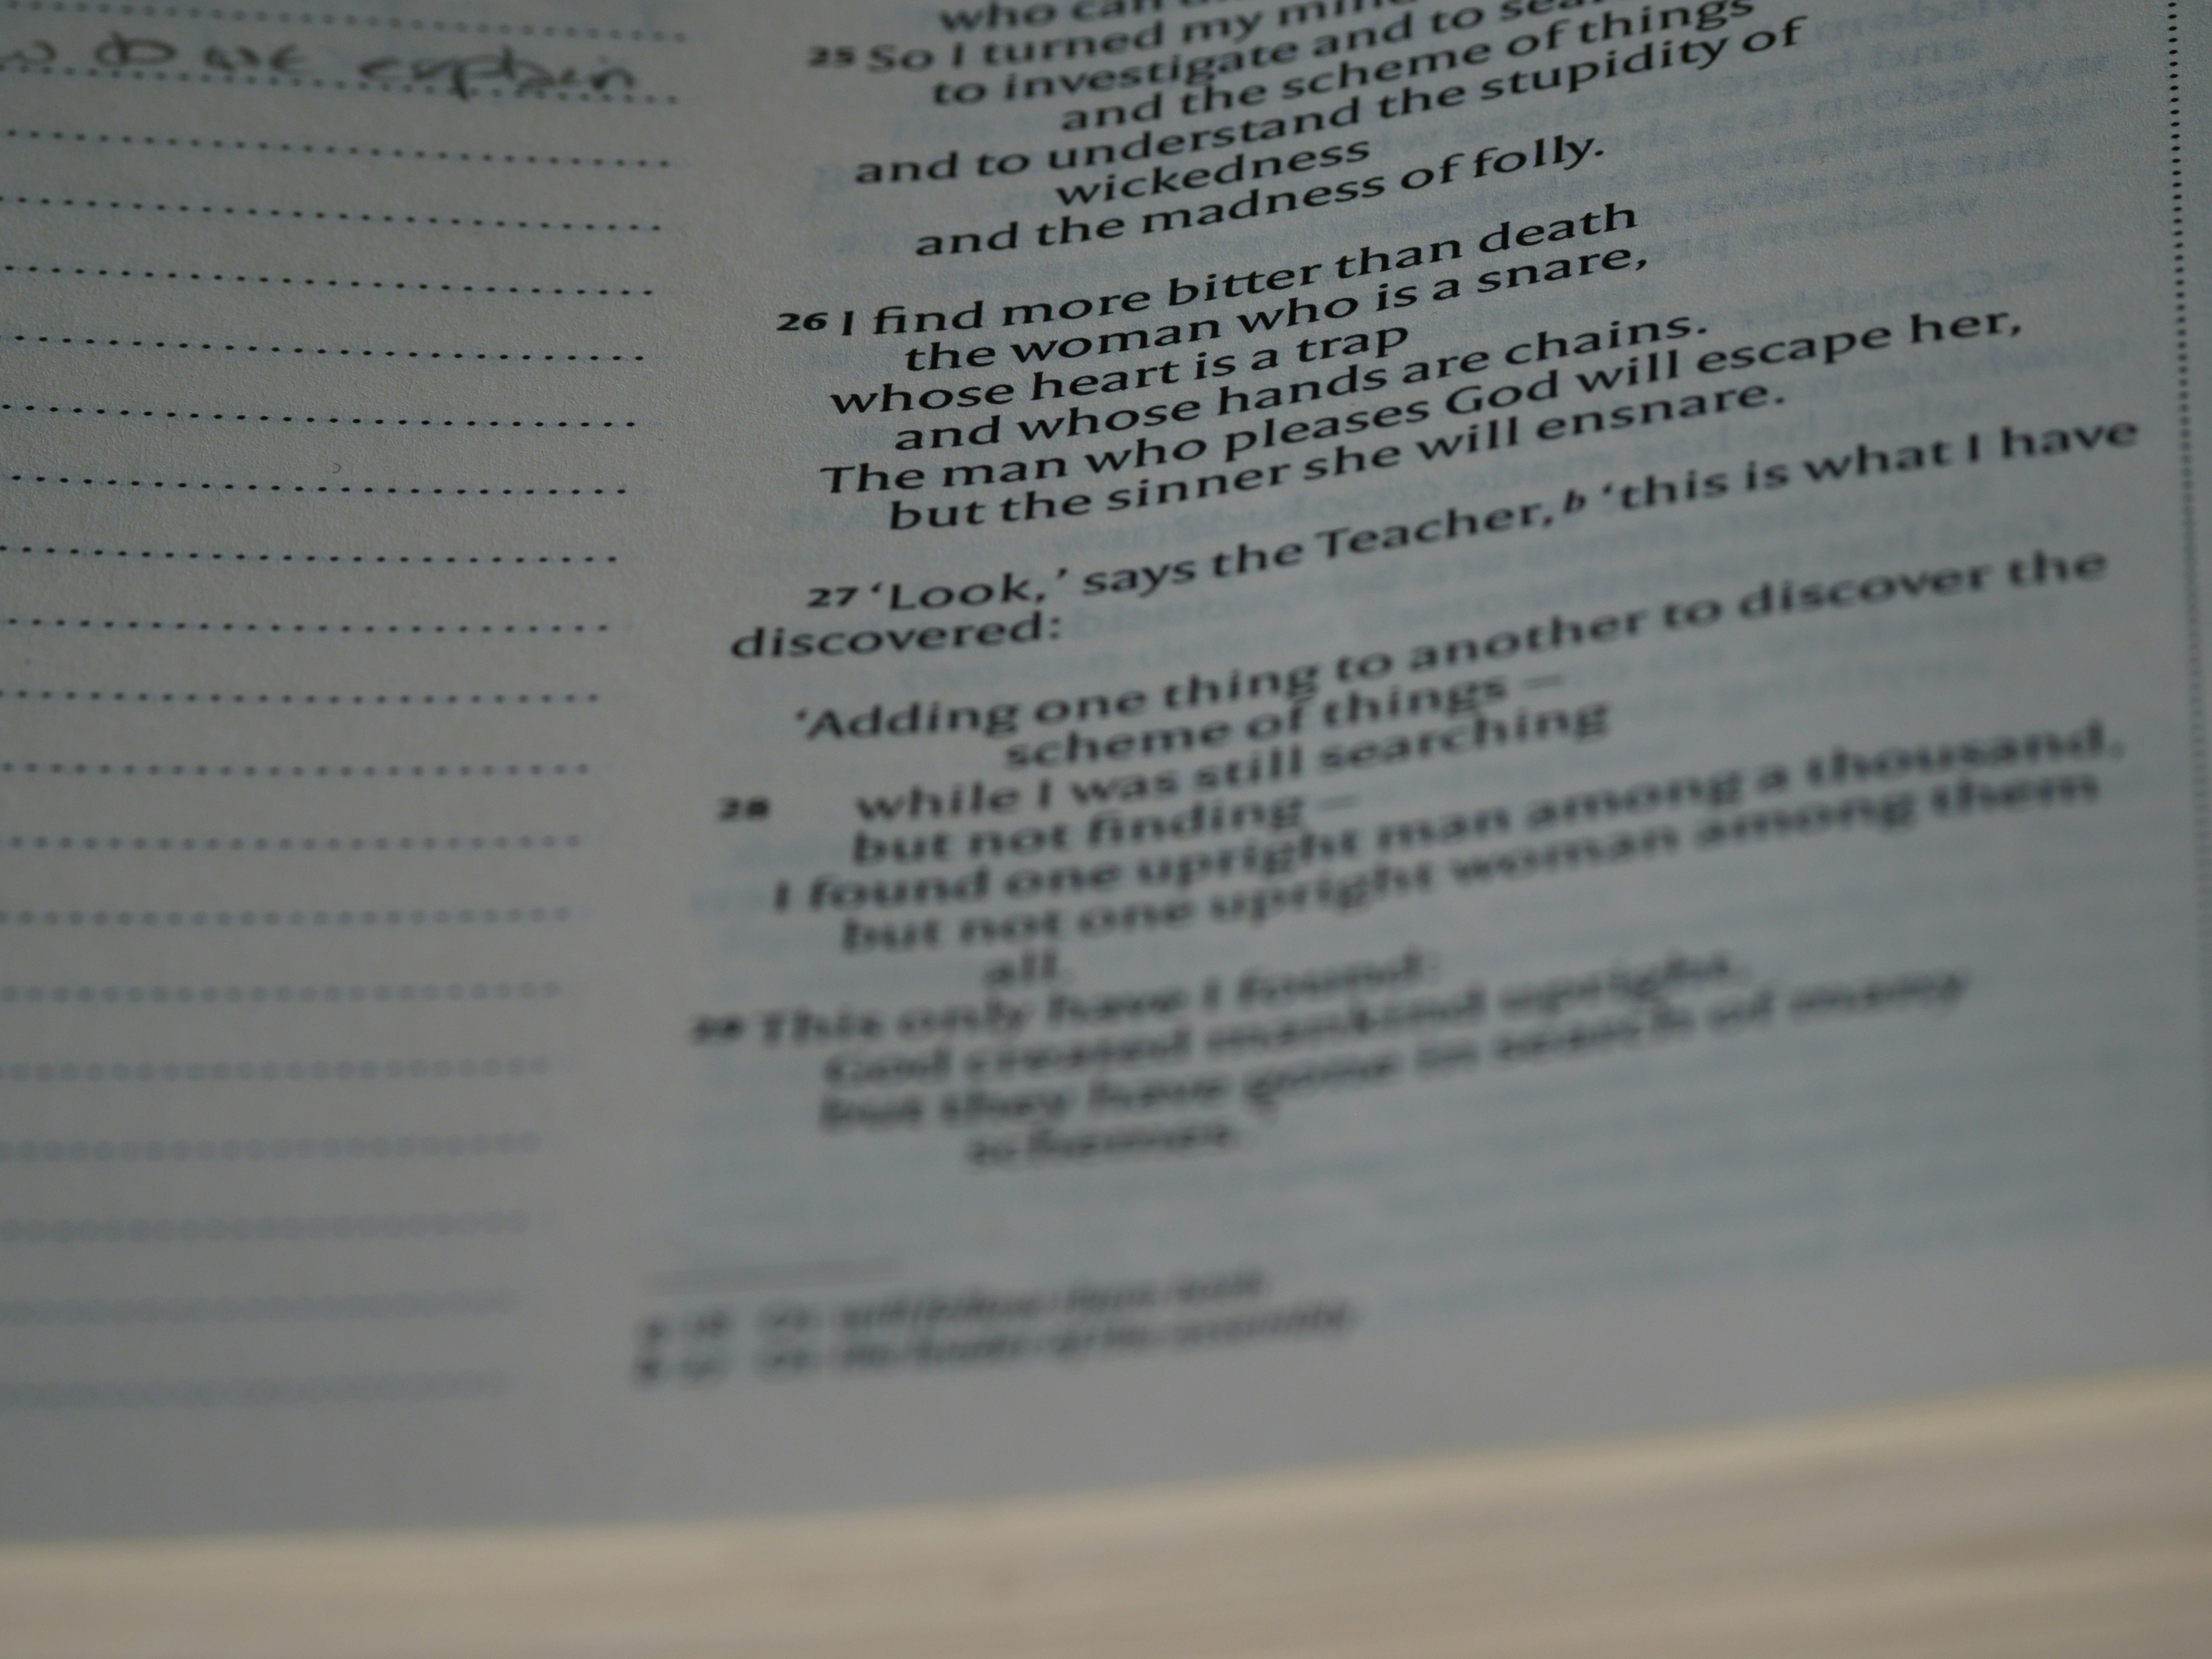 do we explain
who can
25 So I turned my
to investigate and to
and the scheme of things
and to understand the stupidity of
wickedness
and the madness of folly.
26 I find more bitter than death
the woman who is a snare,
whose heart is a trap
and whose hands are chains.
The man who pleases God will escape her,
but the sinner she will ensnare.
27 ‘Look,’ says the Teacher, b ‘this is what I have
discovered:
‘Adding one thing to another to discover the
scheme of things –
28 while I was still searching
but not finding –
I found one upright man among a thousand,
but not one upright woman among them
all.
29 This only have I found:
God created mankind upright,
but they have gone in search of many
schemes.’